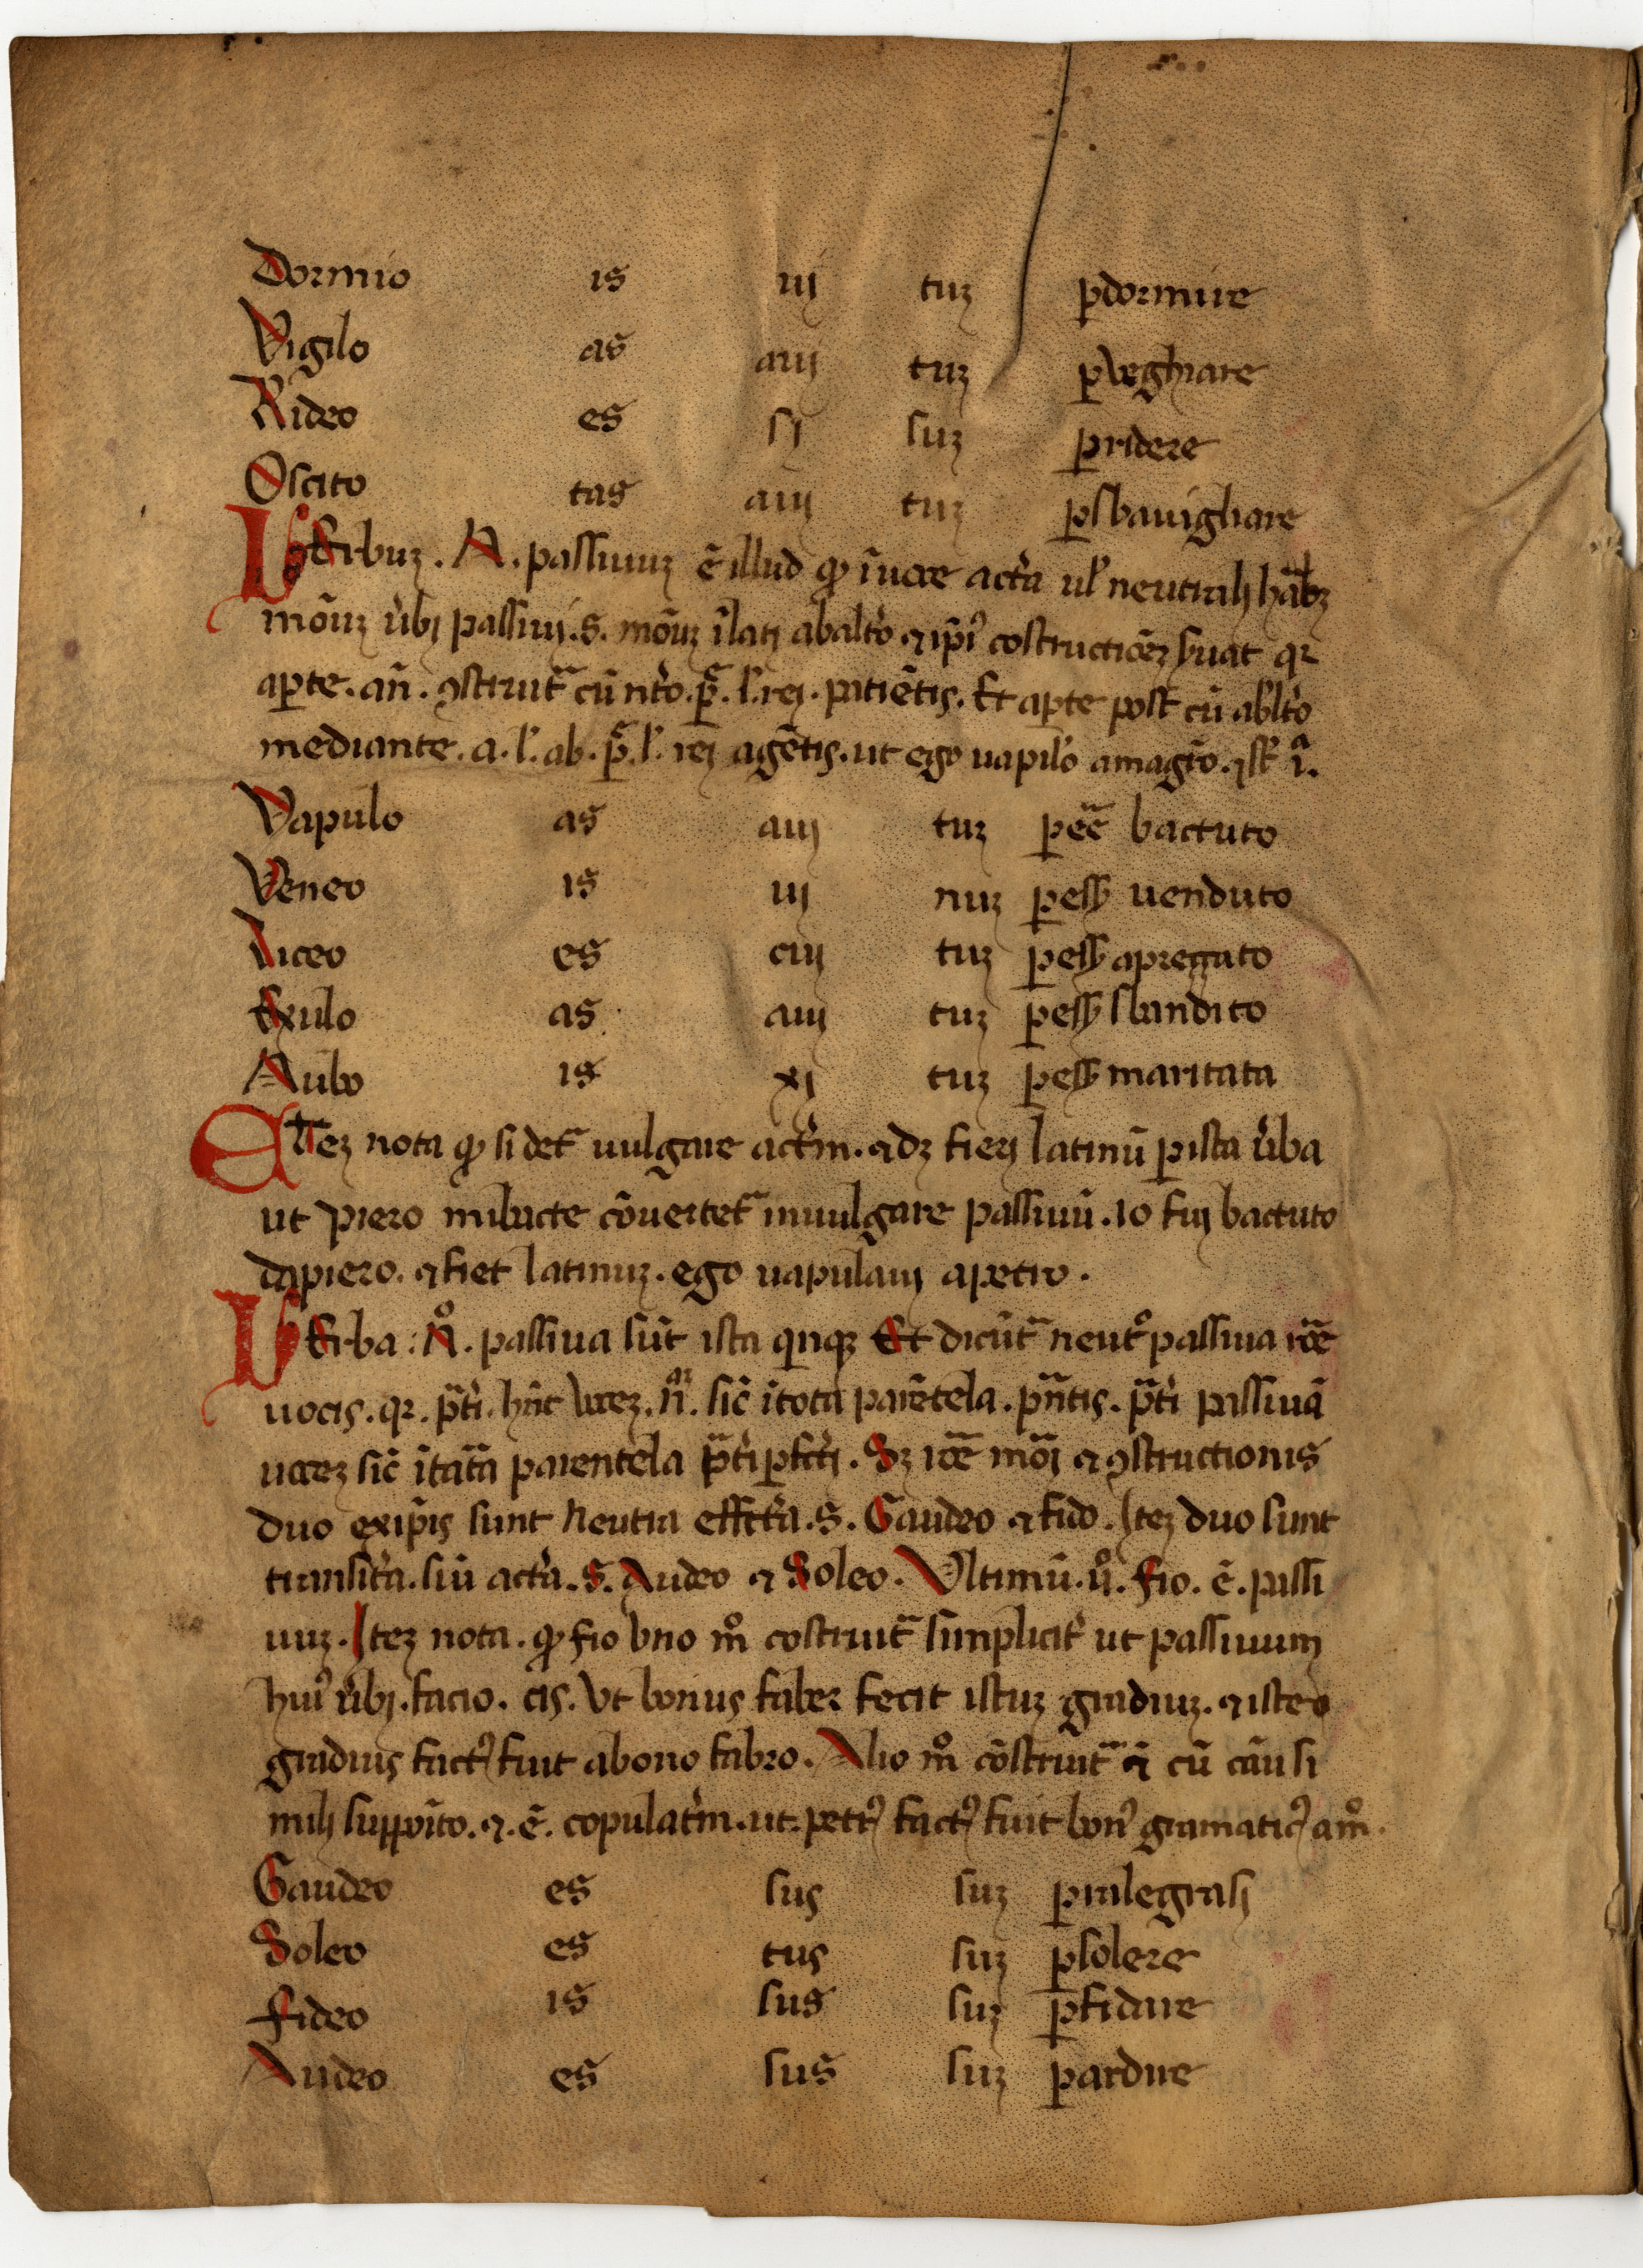 Dormio is iuj tuz ꝑdormire
Vigilo as auj tuz ꝑveghiare
Rideo es sj suz ꝑridere
Oscito tas auj tuz ꝑsbauighare
VErbuz . N . passiuuz ē illud ꝙ ĩ uoce act̾a ul᾽ neutralj hab̃z
mõuz v̾bj passiuj . S . mõuz ĩlatj abalt̾o ⁊ ip̃i᾽ costructiõez s̾uat qꝛ
aꝑte . añ . ꝯstruit̃ cũ nt̾o . ꝑ̃ . l᾽. rej . patiẽtis . Et aꝑte post cũ abl̾to
mediante . a . l᾽. ab . ꝑ̃ . l᾽ rej agẽtis . ut ego uapulo amagr̃o .
Vapulo as auj tuz ꝑeẽ bactuto
Veneo is iuj nuz ꝑess̾ uenduto
Liceo es cuj tuz ꝑess̾ apregiato
Exulo as auj tuz ꝑess̾ sbandito
Nubo is xj tuz ꝑess̾ maritata
ITez nota ꝙ si det̃ uulgare act̾m . ⁊ dz fierj latinũ ꝑ ista v̾ba
ut piero mibacte cõuertet̃ inuulgare passiuũ . io fuj bactuto
dapiero . ⁊ fiet latinuz . ego uapulauj apetro .
VErba . N̊ . passiua sũt ista qinqꝫ Et dicũt̃ neut̊passiua rõe
uocis . qꝛ . p̃t̾i . hñt uocez . sic̃ ĩtota parẽtela . p̃ñtis . p̃t̾i passiuã
uocez sic̃ ĩtata parentela p̃t̾i ꝑfct̾j . Sz rõe mõj ⁊ ꝯstructionis
duo exip̃is sunt neutra effct̾a . S . Gaudeo ⁊ fido . Itez duo sunt
transit̾a . siũ act̾a . S . Audeo ⁊ Soleo . Vltimũ . ů . fio . ē . passi
uuz . Itez nota . ꝙ fio vno m̊ costruit̃ simplicit̾ ut passiuum
hui᾽ v̾bj . facio . cis . Vt bonus faber fecit istuz gladiuz . ⁊ iste
gladius fact᾽ fuit abono fabro . Alio m̊ cõstruit̃ cũ cãu si
milj suppõito . ⁊ . ē . copulat̾m . ut . petr᾽ fact᾽ fuit bon᾽ gramatic᾽
Gaudeo es sus suz ꝑralegrasj
Soleo es tus suz ꝑsolere
Fideo is sus suz ꝑfidare
Audeo es sus suz ꝑardire